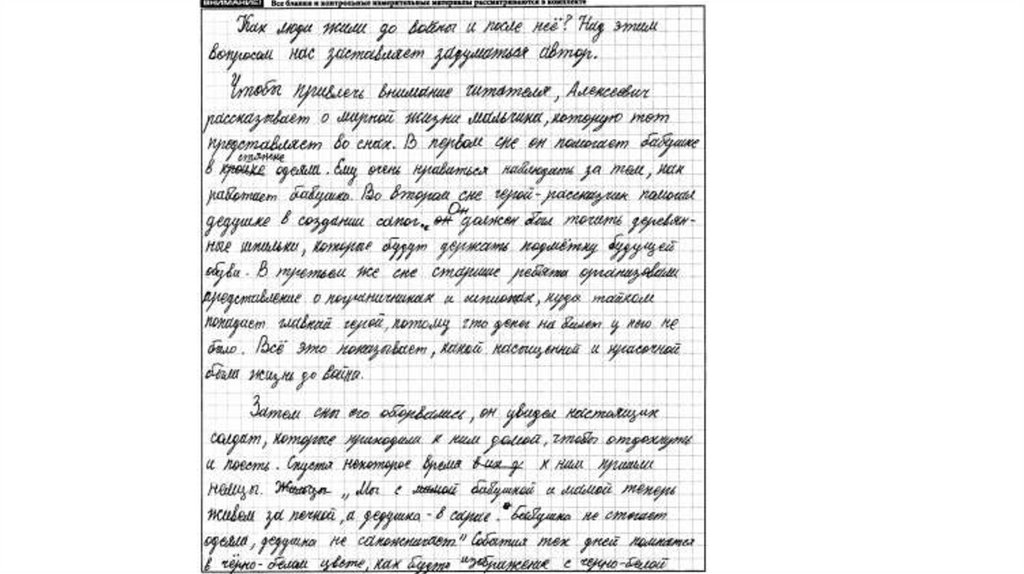 ВНИМАНИЕ! Все бланки и контрольные измерительные материалы рассматриваются в комплекте
Как люди жили до войны и после неё? Над этим
вопросом нас заставляет задуматься автор.
Чтобы привлечь внимание читателя, Алексеевич
рассказывает о мирной жизни мальчика, которую тот
представляет во снах. В первом сне он помогает бабушке
в кройке стяжке одеяла. Ему очень нравиться наблюдать за тем, как
работает бабушка. Во втором сне герой-рассказчик помогал
дедушке в создании сапог. он Он должен был точить деревян-
ные шпильки, которые будут держать подмётку будущей
обуви. В третьем же сне старшие ребята организовали
представление о пограничниках и шпионах, куда тайком
попадает главный герой, потому что денег на билет у него не
было. Всё это показывает, какой насыщенной и красочной
была жизнь до война.
Затем сны его оборвались, он увидел настоящих
солдат, которые приходили к ним домой, чтобы отдохнуть
и поесть. Спустя некоторое время к ним пришли
немцы. „Мы с мамой бабушкой и мамой теперь
живем за печкой, а дедушка - в сарае. Бабушка не стегает
одеяла, дедушка не сапожничает" События тех дней помнятся
в чёрно-белом цвете, как будто "изображение с черно-белой